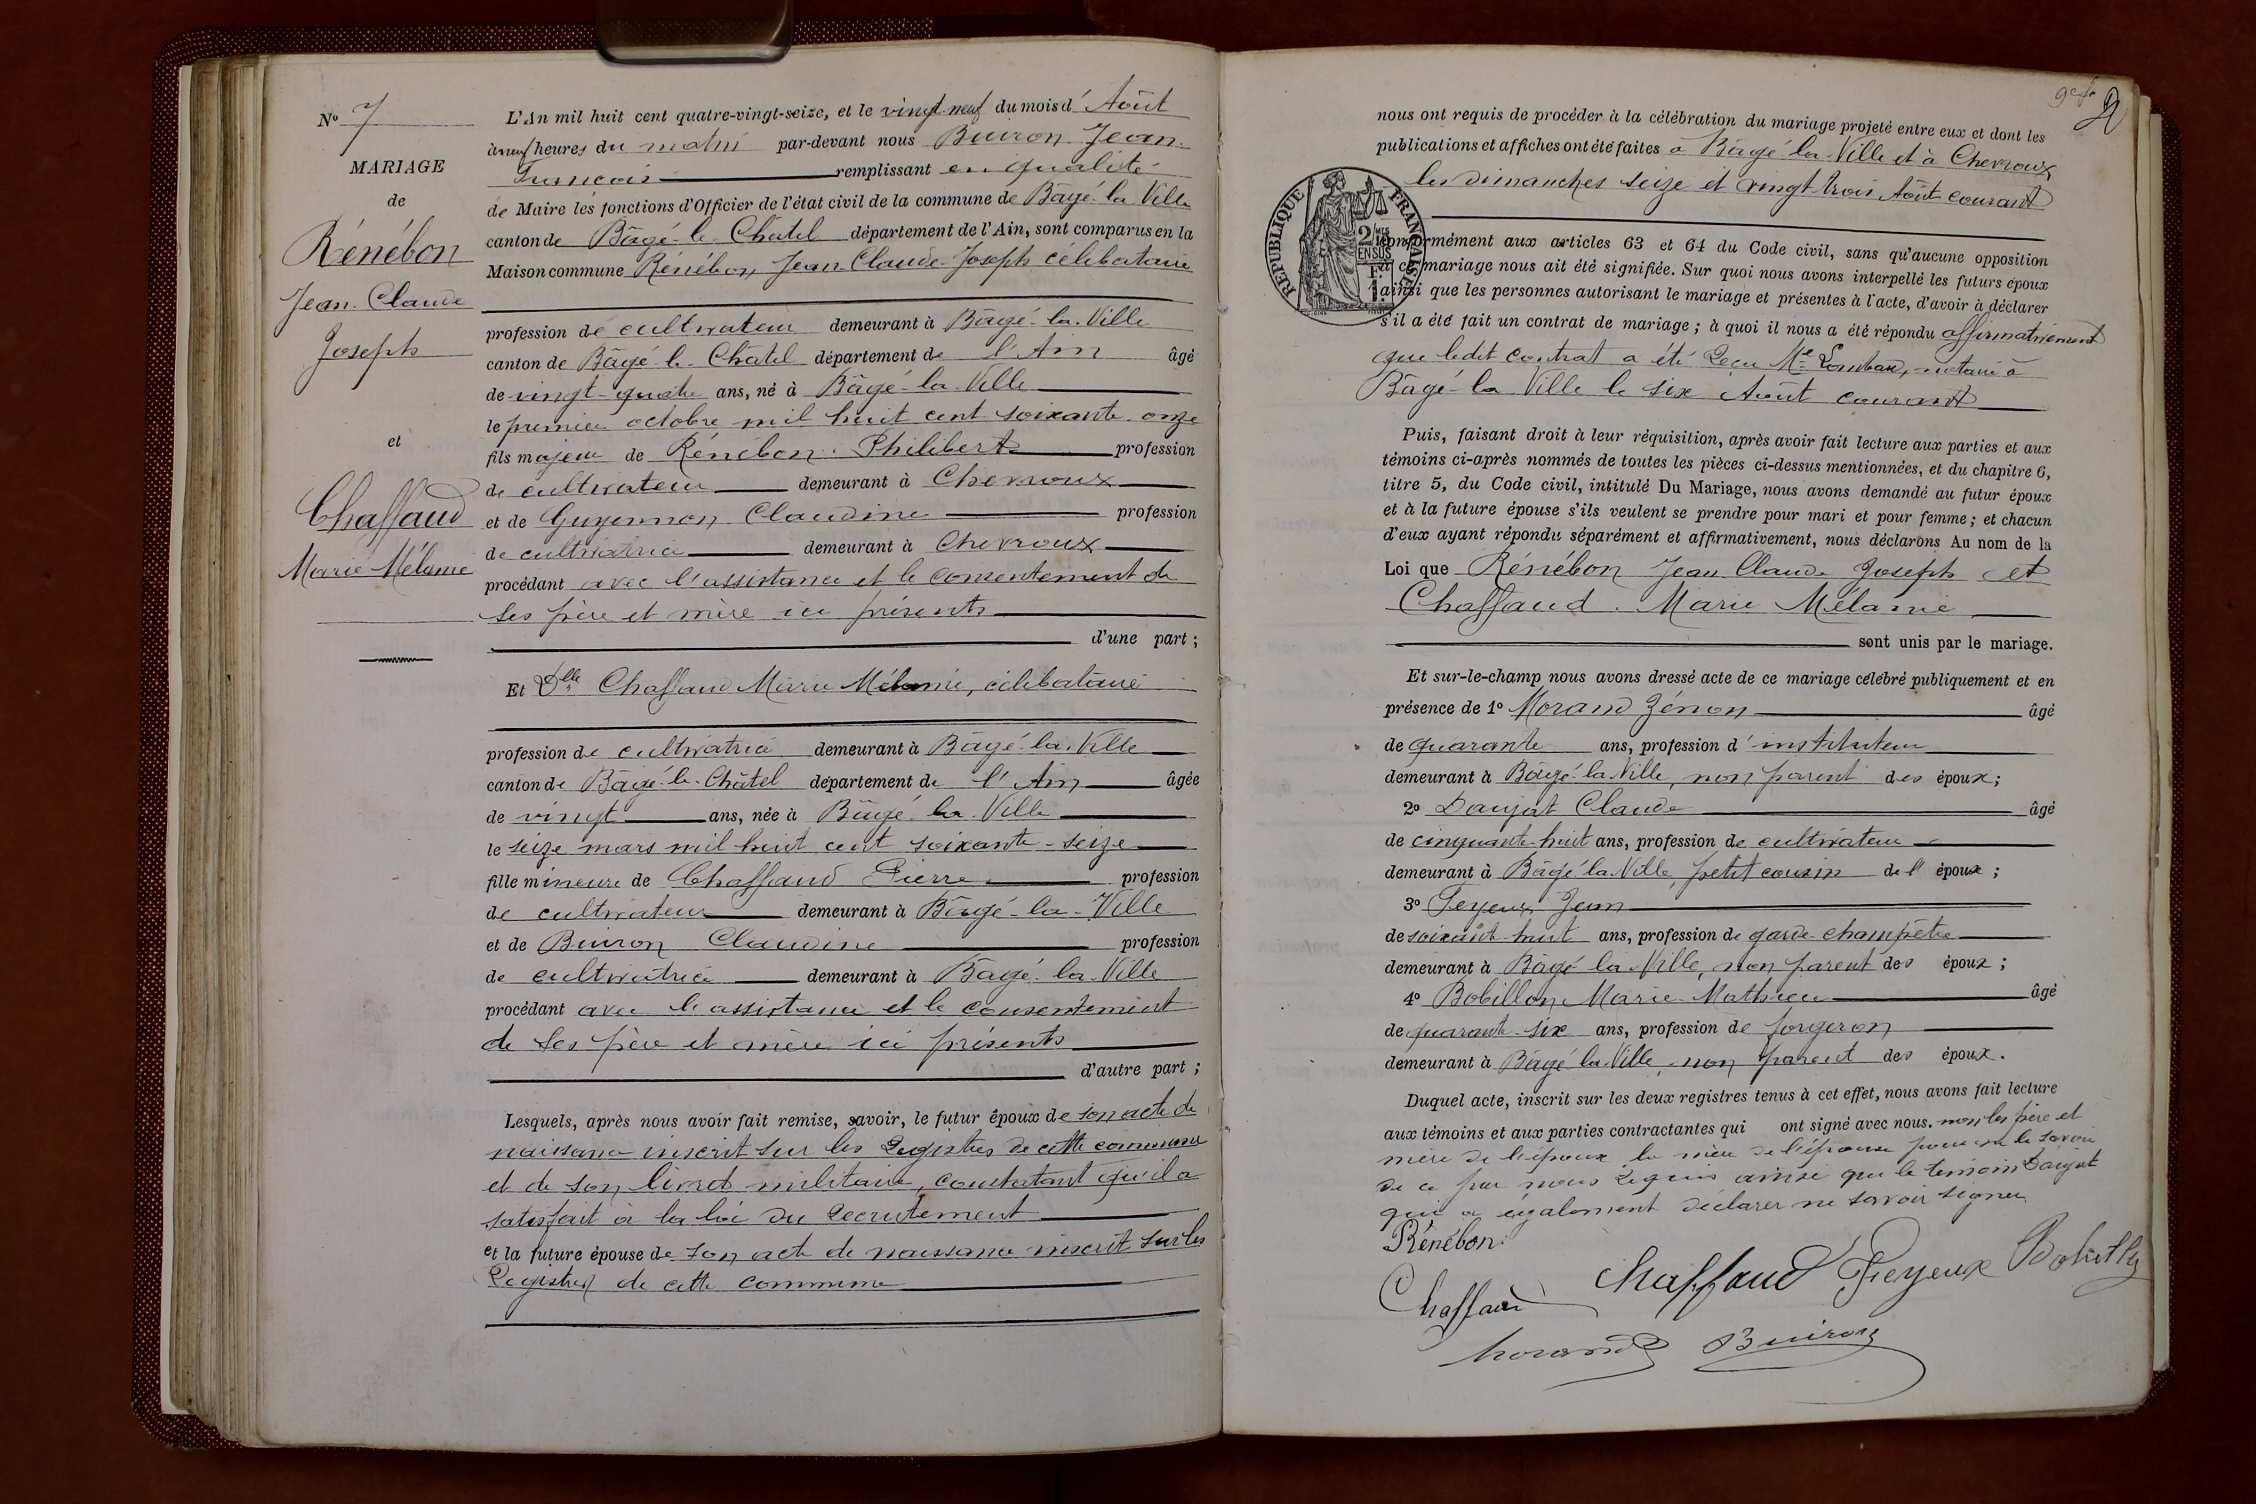 Nº 7
MARIAGE
de
Rénébon
Jean-Claude
Joseph
et
Chaffaud
Marie Mélanie
L'An mil huit cent quatre-vingt-seize, et le vingt-neuf du mois d'Août
à neuf heures du matin par-devant nous Buiron Jean-
François remplissant en qualité
de Maire les fonctions d'Officier de l'état civil de la commune de Bâgé-la-Ville
canton de Bâgé-le-Châtel département de l'Ain, sont comparus en la
Maison commune Rénébon Jean Claude Joseph célibataire
profession de cultivateur demeurant à Bâgé-la-Ville
canton de Bâgé-le-Châtel département de l'Ain âgé
de vingt-quatre ans, né à Bâgé-la-Ville
le premier octobre mil huit cent soixante-onze
fils majeur de Rénébon Philibert profession
de cultivateur demeurant à Chevroux
et de Guyennon Claudine profession
de cultivatrice demeurant à Chevroux
procédant avec l'assistance et le consentement de
ses père et mère ici présents
d'une part ;
Et Dlle Chaffaud Marie Mélanie, célibataire
profession de cultivatrice demeurant à Bâgé-la-Ville
canton de Bâgé-le-Châtel département de l'Ain âgée
de vingt ans, née à Bâgé-la-Ville
le seize mars mil huit cent soixante-seize
fille mineure de Chaffaud Pierre profession
de cultivateur demeurant à Bâgé-la-Ville
et de Buiron Claudine profession
de cultivatrice demeurant à Bâgé-la-Ville
procédant avec l'assistance et le consentement
de ses père et mère ici présents
d'autre part ;
Lesquels, après nous avoir fait remise, savoir, le futur époux de son acte de
naissance inscrit sur les Registres de cette commune
et de son livret militaire, constatant qu'il a
satisfait à la loi du Recrutement
et la future épouse de son acte de naissance inscrit sur les
Registres de cette commune
nous ont requis de procéder à la célébration du mariage projeté entre eux et dont les
publications et affiches ont été faites à Bâgé-la-Ville et à Chevroux
les dimanches seize et vingt-trois Août courant
RÉPUBLIQUE FRANÇAISE
conformément aux articles 63 et 64 du Code civil, sans qu'aucune opposition
à ce mariage nous ait été signifiée. Sur quoi nous avons interpellé les futurs époux
ainsi que les personnes autorisant le mariage et présentes à l'acte, d'avoir à déclarer
s'il a été fait un contrat de mariage ; à quoi il nous a été répondu affirmativement
que ledit contrat a été reçu Me Lombard, notaire à
Bâgé-la-Ville le six Août courant
Puis, faisant droit à leur réquisition, après avoir fait lecture aux parties et aux
témoins ci-après nommés de toutes les pièces ci-dessus mentionnées, et du chapitre 6,
titre 5, du Code civil, intitulé Du Mariage, nous avons demandé au futur époux
et à la future épouse s'ils veulent se prendre pour mari et pour femme ; et chacun
d'eux ayant répondu séparément et affirmativement, nous déclarons Au nom de la
Loi que Rénébon Jean Claude Joseph et
Chaffaud Marie Mélanie
sont unis par le mariage.
Et sur-le-champ nous avons dressé acte de ce mariage célébré publiquement et en
présence de 1º Morand Zénon âgé
de quarante ans, profession d'instituteur
demeurant à Bâgé-la-Ville, non parent des époux ;
2º Daujat Claude âgé
de cinquante-huit ans, profession de cultivateur
demeurant à Bâgé-la-Ville, petit cousin de l'époux ;
3º Feyeux Jean
de soixante-huit ans, profession de garde-champêtre
demeurant à Bâgé-la-Ville, non parent des époux ;
4º Bobillon Marie-Mathieu âgé
de quarante-six ans, profession de forgeron
demeurant à Bâgé-la-Ville, non parent des époux.
Duquel acte, inscrit sur les deux registres tenus à cet effet, nous avons fait lecture
aux témoins et aux parties contractantes qui ont signé avec nous. non les père et
mère de l'époux la mère de l'épouse pour ne le savoir
de ce par nous requis ainsi que le témoin Daujat
qui a également déclarer ne savoir signer
Rénébon
Chaffaud Chaffaud Feyeux
Morand Buiron